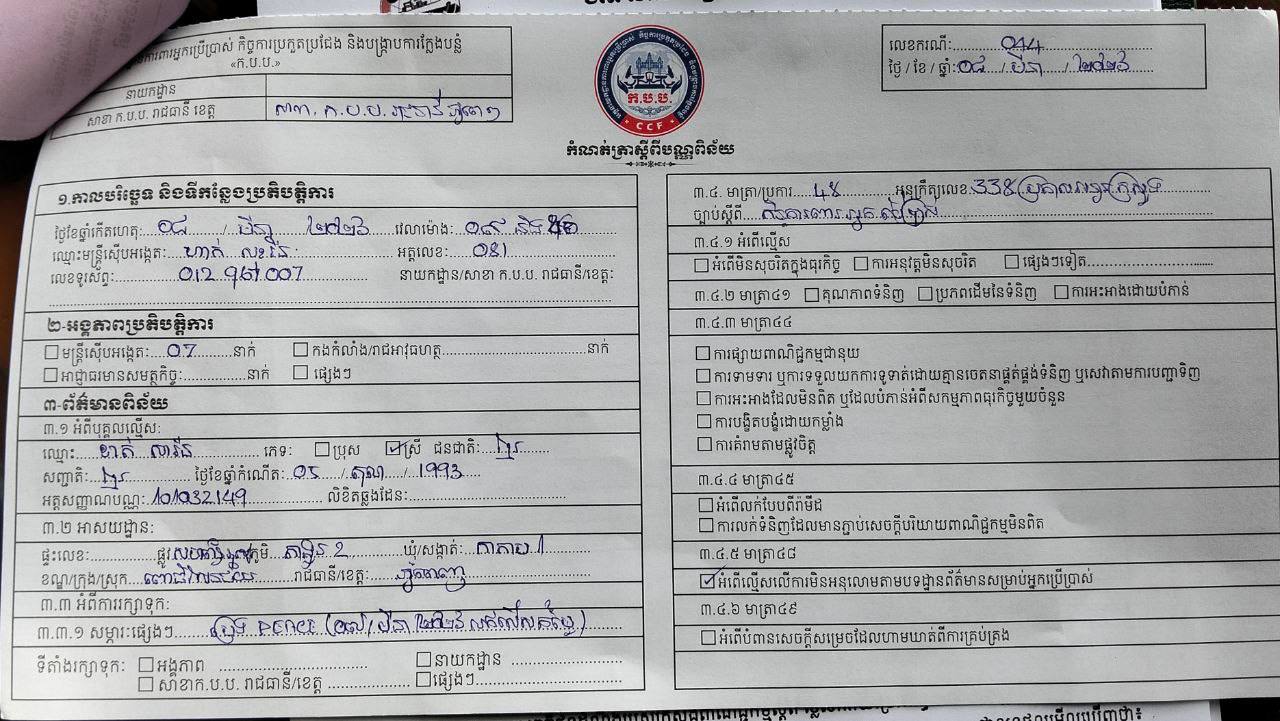 ការពារអ្នកប្រើប្រាស់ កិច្ចការប្រកួតប្រជែង និងបង្ក្រាបការក្លែងបន្លំ
«ក.ប.ប.»
នាយកដ្ឋាន
សាខា ក.ប.ប. រាជធានី ខេត្ត
ក.ប.ប.
CCF
កំណត់ត្រាស្តីពីបណ្ណពិន័យ
លេខករណី: 014
ថ្ងៃ / ខែ / ឆ្នាំ: ០៨ / មីនា / ២០២៦
១.កាលបរិច្ឆេទ និងទីកន្លែងប្រតិបត្តិការ
ថ្ងៃខែឆ្នាំកើតហេតុ: ០៨ / មីនា / ២០២៦ វេលាម៉ោង:
ឈ្មោះមន្ត្រីស៊ើបអង្កេត: ហាក់ អត្តលេខ: 081
លេខទូរស័ព្ទ: 012 967 007 នាយកដ្ឋាន/សាខា ក.ប.ប. រាជធានី/ខេត្ត:
២-អង្គភាពប្រតិបត្តិការ
មន្ត្រីស៊ើបអង្កេត: 07 នាក់ កងកំលាំង/រាជអាវុធហត្ថ នាក់
អាជ្ញាធរមានសមត្ថកិច្ច: នាក់ ផ្សេងៗ
៣-ព័ត៌មានពិន័យ
៣.១ អំពីបុគ្គលល្មើស:
ឈ្មោះ: ភេទ: ប្រុស ស្រី ជនជាតិ: ខ្មែរ
សញ្ជាតិ: ខ្មែរ ថ្ងៃខែឆ្នាំកំណើត: 05 / តុលា / 1993
អត្តសញ្ញាណបណ្ណ: 101032149 លិខិតឆ្លងដែន:
៣.២ អាសយដ្ឋាន:
ផ្ទះលេខ: ផ្លូវ ភូមិ ឃុំ/សង្កាត់:
ខណ្ឌ/ក្រុង/ស្រុក រាជធានី/ខេត្ត: ភ្នំពេញ
៣.៣ អំពីការរក្សាទុក:
៣.៣.១ សម្ភារៈផ្សេងៗ
ទីតាំងរក្សាទុក: អង្គភាព នាយកដ្ឋាន
សាខាក.ប.ប. រាជធានី/ខេត្ត ផ្សេងៗ
៣.៤. មាត្រា/ប្រការ 48 អនុក្រឹត្យលេខ: 338
ច្បាប់ស្តីពី
៣.៤.១ អំពើល្មើស
អំពើមិនសុចរិតក្នុងធុរកិច្ច ការអនុវត្តមិនសុចរិត ផ្សេងៗទៀត
៣.៤.២ មាត្រា៤១ គុណភាពទំនិញ ប្រភពដើមនៃទំនិញ ការអះអាងដោយបំភាន់
៣.៤.៣ មាត្រា៤៤
ការផ្សាយពាណិជ្ជកម្មជានុយ
ការទាមទារ ឬការទទួលយកការទូទាត់ដោយគ្មានចេតនាផ្គត់ផ្គង់ទំនិញ ឬសេវាតាមការបញ្ជាទិញ
ការអះអាងដែលមិនពិត ឬដែលបំភាន់អំពីសកម្មភាពធុរកិច្ចមួយចំនួន
ការបង្ខិតបង្ខំដោយកម្លាំង
ការគំរាមតាមផ្លូវចិត្ត
៣.៤.៤ មាត្រា៤៥
អំពើលក់បែបពីរ៉ាមីដ
ការលក់ទំនិញដែលមានភ្ជាប់សេចក្តីបរិយាយពាណិជ្ជកម្មមិនពិត
៣.៤.៥ មាត្រា៤៨
អំពើល្មើសលើការមិនអនុលោមតាមបទដ្ឋានព័ត៌មានសម្រាប់អ្នកប្រើប្រាស់
៣.៤.៦ មាត្រា៤៩
អំពើបំពានសេចក្តីសម្រេចដែលហាមឃាត់ពីការគ្រប់គ្រង